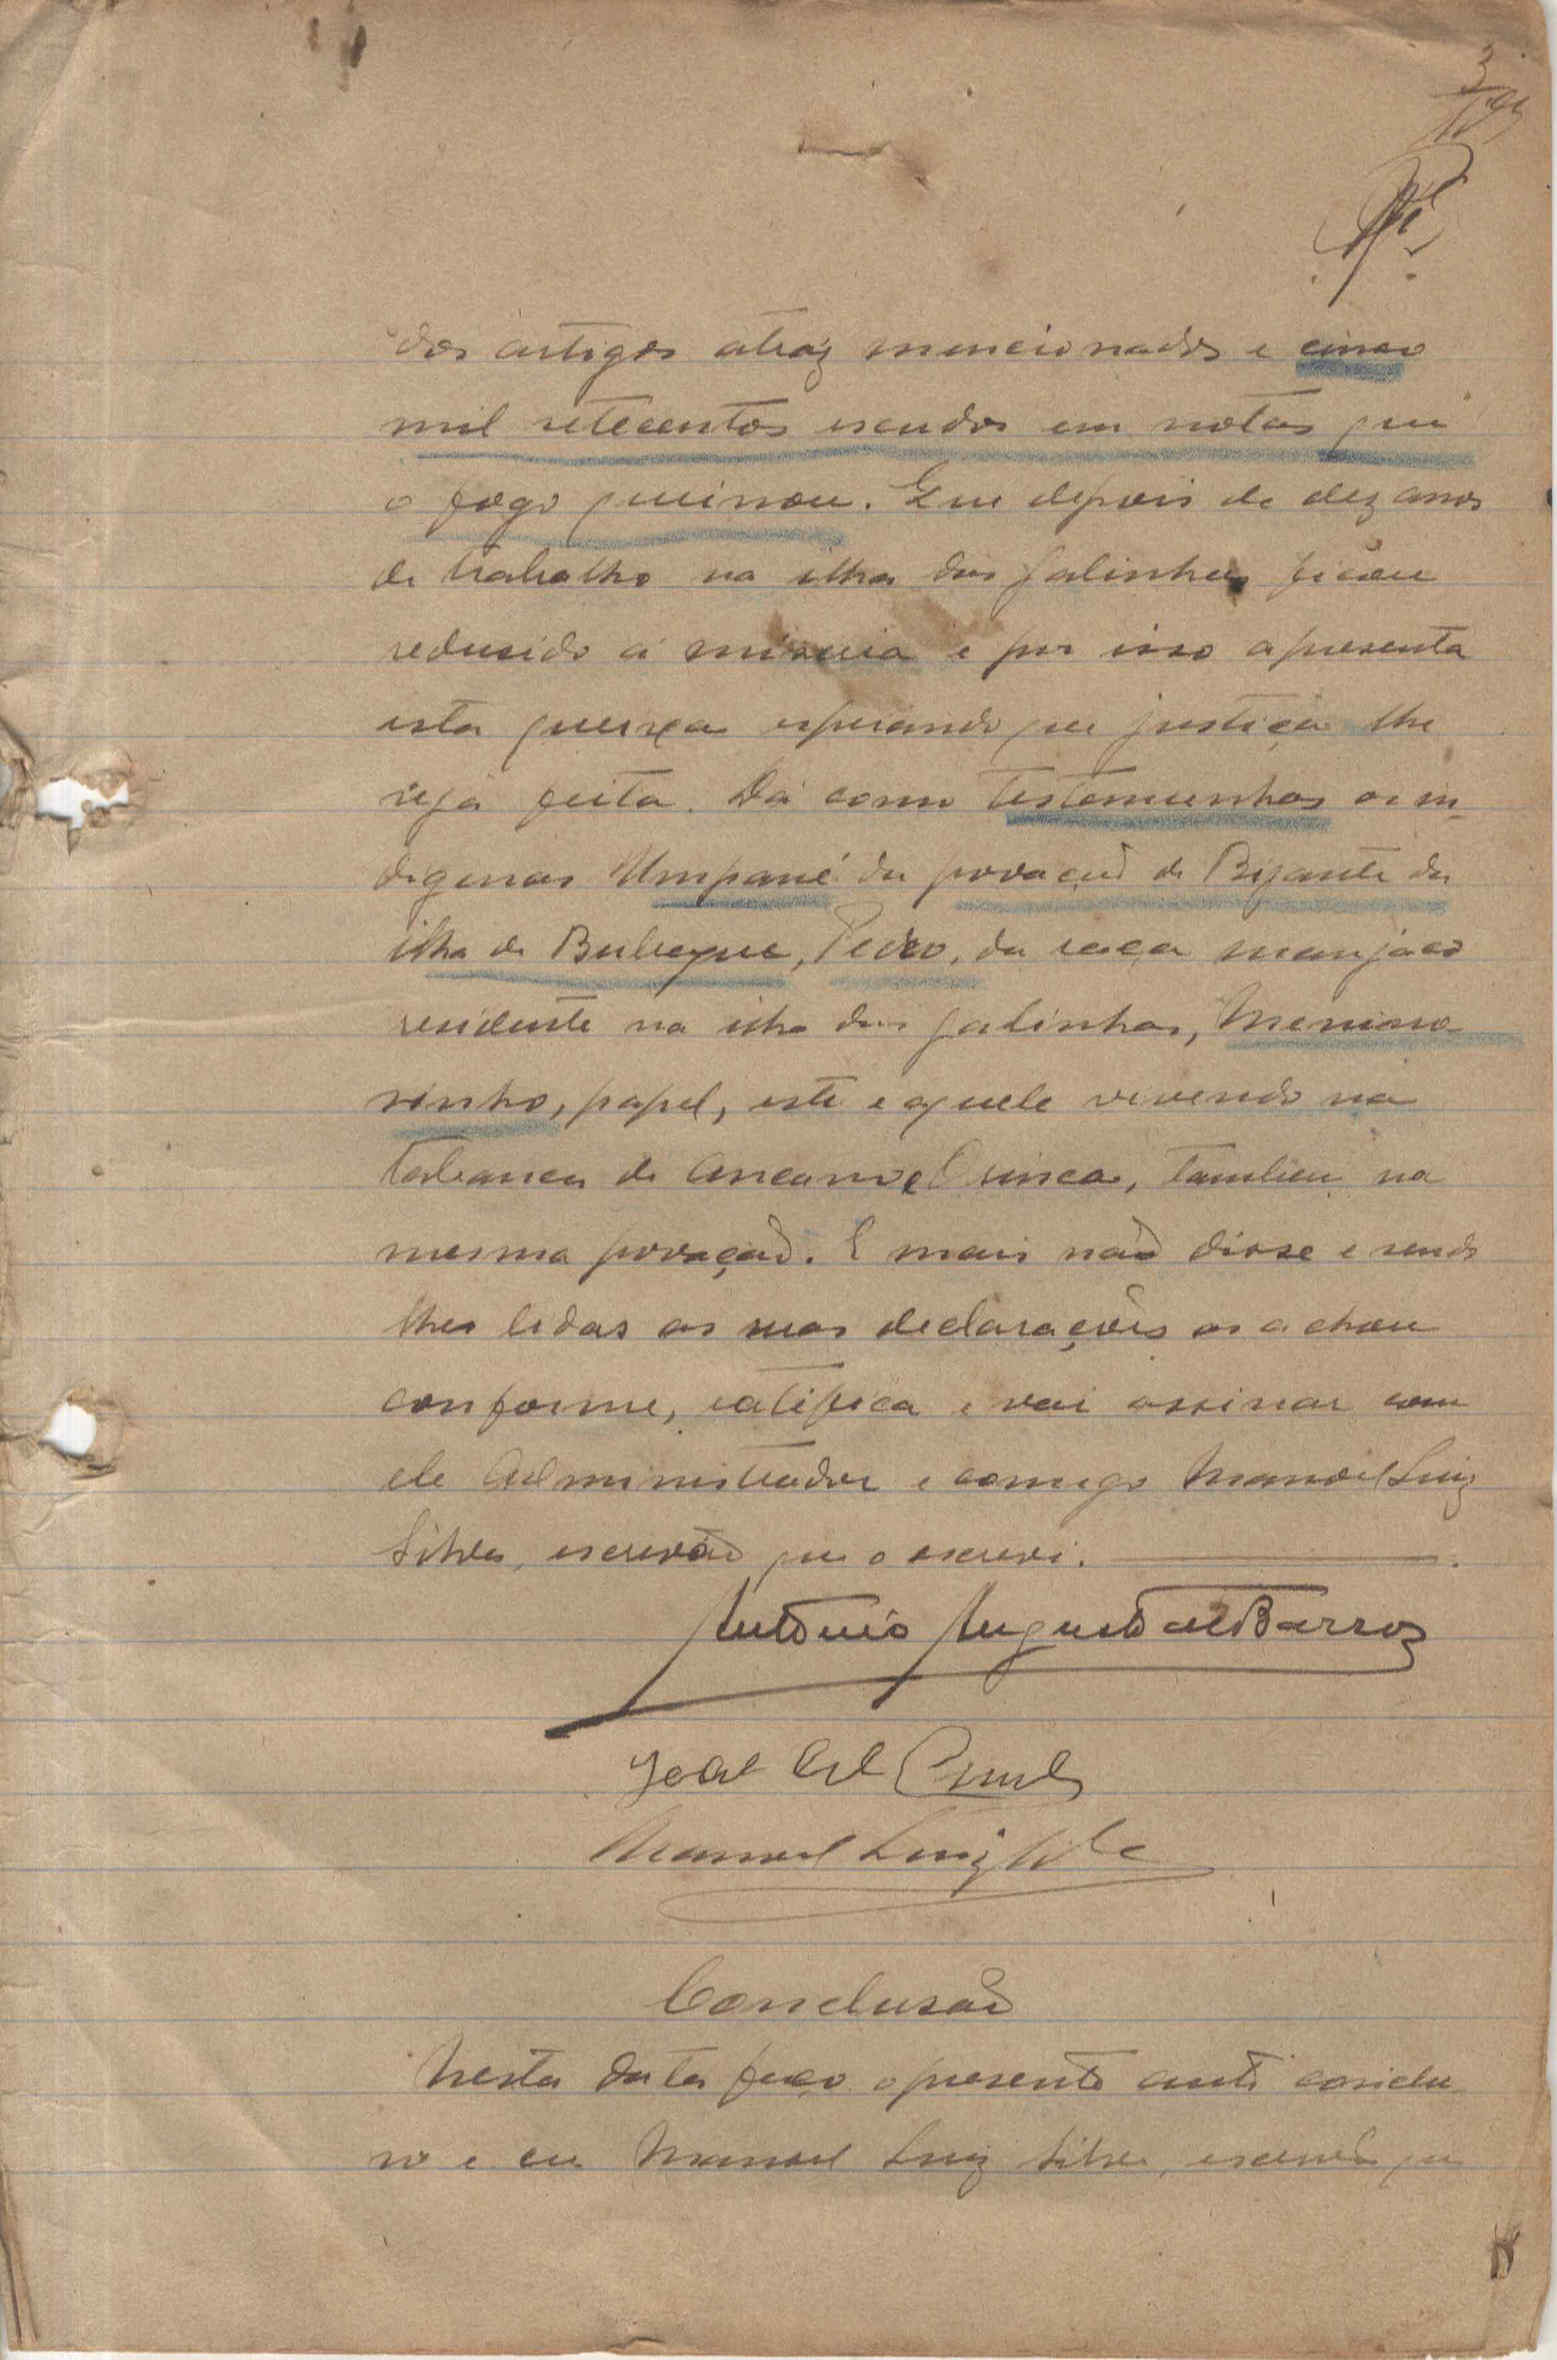 3
dos artigos atraz mencionados e cinco
mil setecentos escudos em notas que
o fogo queimou. Que depois de dez anos
de trabalho na ilha das Galinhas ficou
reduzido á miseria e por isso apresenta
esta queixa esperando que justiça lhe
seja feita. Dá como testemunhas os in-
digenas Umpané da povoação de Bijante da
ilha de Bubaque, Pedro, da raça manjaco
residente na ilha das Galinhas, Menino
sinho, papel, este e aquele vivendo na
tabanca de Ancano e Orinca, tambem na
mesma povoação. E mais não disse e sendo
lhes lidas as suas declarações as achou
conforme, ratifica e vai assinar com
ele Administrador e comigo Manoel Luiz
Silva, escrivão que o escrevi.
António Augusto de Barros
Manoel Luiz Silva
Conclusão
Nesta data faço o presente auto conclu
so e eu Manoel Luiz Silva, escrivão que